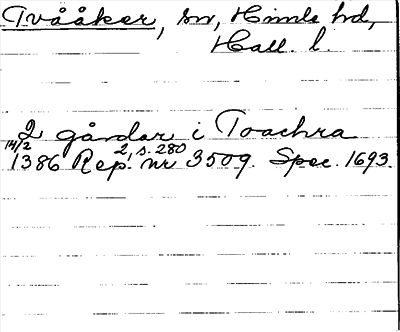 Tvååker, sn, Himle hd,
Hall. l.
2 gårdar i Toachra
14/2 1386 Rep. 2, s. 280 nr 3509. Spec. 1693.